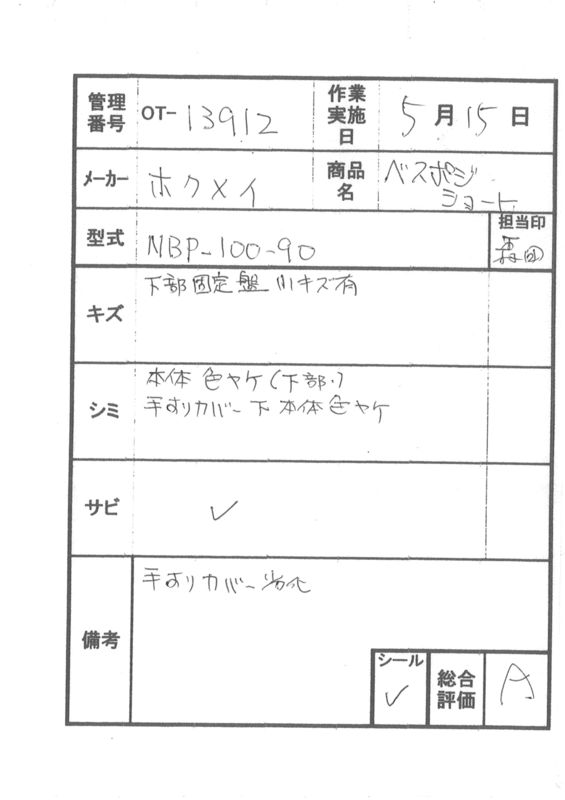 管理番号 OT-13912 作業実施日 5月15日
メーカー ホクメイ 商品名 ベスポジショート
型式 NBP-100-90 担当印
キズ 下部固定盤 小キズ有
シミ 本体 色ヤケ(下部)
手すりカバー下 本体色ヤケ
サビ ✓
備考 手すりカバー劣化
シール ✓ 総合評価 A